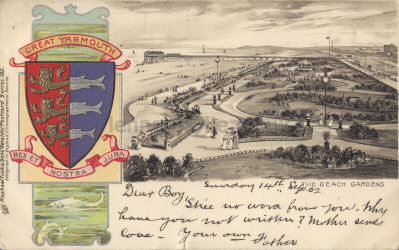 GREAT YARMOUTH
REX ET NOSTRA JURA
Raphael Tuck & Sons "Heraldic" Postcard Series
THE BEACH GARDENS
Sunday 14th Sep. 02
Dear Boy
Still no word from you. Why
have you not written? Mother sends
love - Your own Father